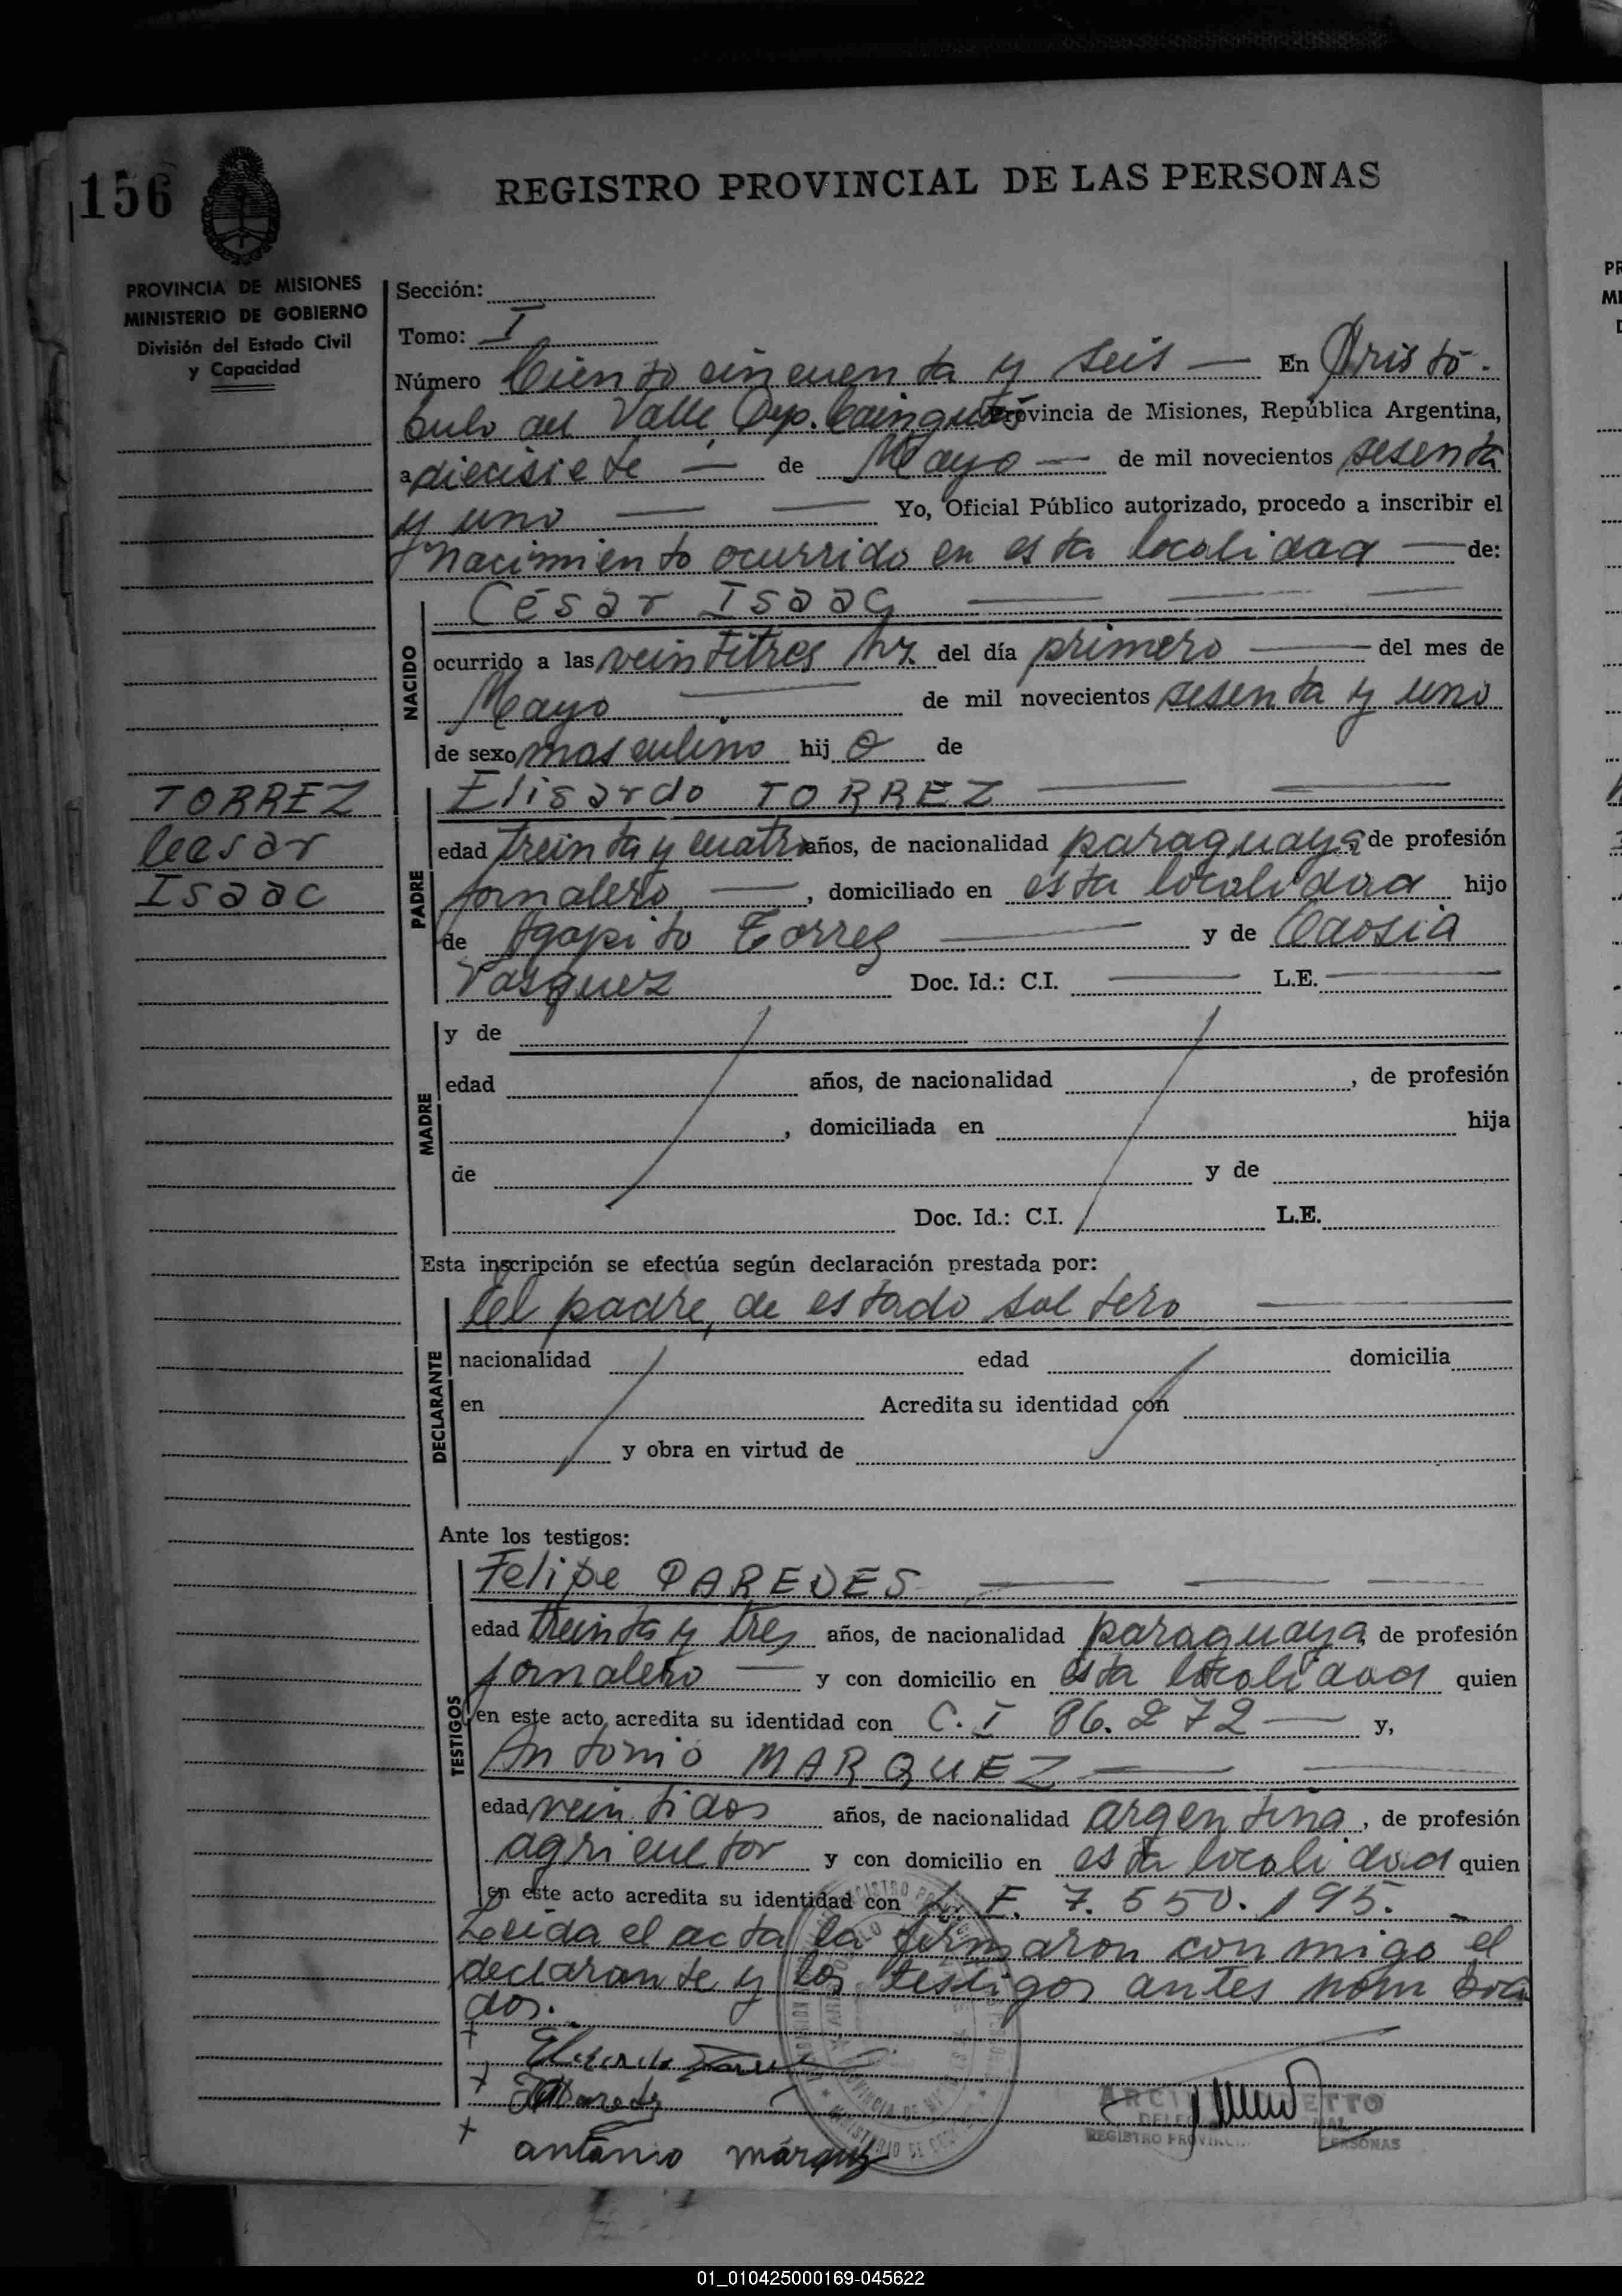 156
REGISTRO PROVINCIAL DE LAS PERSONAS
PROVINCIA DE MISIONES
MINISTERIO DE GOBIERNO
División del Estado Civil
y Capacidad
Sección:
Tomo: I
Número Ciento cincuenta y seis — En Aristó-
bulo del Valle, Dep. Cainguás Provincia de Misiones, República Argentina,
a diecisiete — de Mayo — de mil novecientos sesenta
y uno — — Yo, Oficial Público autorizado, procedo a inscribir el
nacimiento ocurrido en esta localidad — de:
NACIDO
César Isaac — — —
ocurrido a las veintitres hs. del día primero — del mes de
Mayo — de mil novecientos sesenta y uno
de sexo masculino hij o de
TORREZ
Cesar
Isaac
PADRE
Elisardo TORREZ — —
edad treinta y cuatro años, de nacionalidad paraguaya de profesión
jornalero —, domiciliado en esta localidad hijo
de Agapito Torres — y de
Vasquez Doc. Id.: C.I. — L.E. —
MADRE
y de
edad años, de nacionalidad , de profesión
, domiciliada en hija
de y de
Doc. Id.: C.I. L.E.
Esta inscripción se efectúa según declaración prestada por:
DECLARANTE
el padre, de estado soltero —
nacionalidad edad domicilia
en Acredita su identidad con
y obra en virtud de
Ante los testigos:
TESTIGOS
Felipe PAREDES — — —
edad treinta y tres años, de nacionalidad paraguaya de profesión
jornalero — y con domicilio en esta localidad quien
en este acto, acredita su identidad con C.I 86.272 — y,
Antonio MARQUEZ — —
edad veintidos años, de nacionalidad argentina, de profesión
agricultor y con domicilio en esta localidad quien
en este acto acredita su identidad con L. E. 7.550.195. -
Leida el acta la firmaron conmigo el
declarante y los testigos antes nombra
dos.
antonio márquez
REGISTRO PERSONAS
01_010425000169-045622
PR
MI